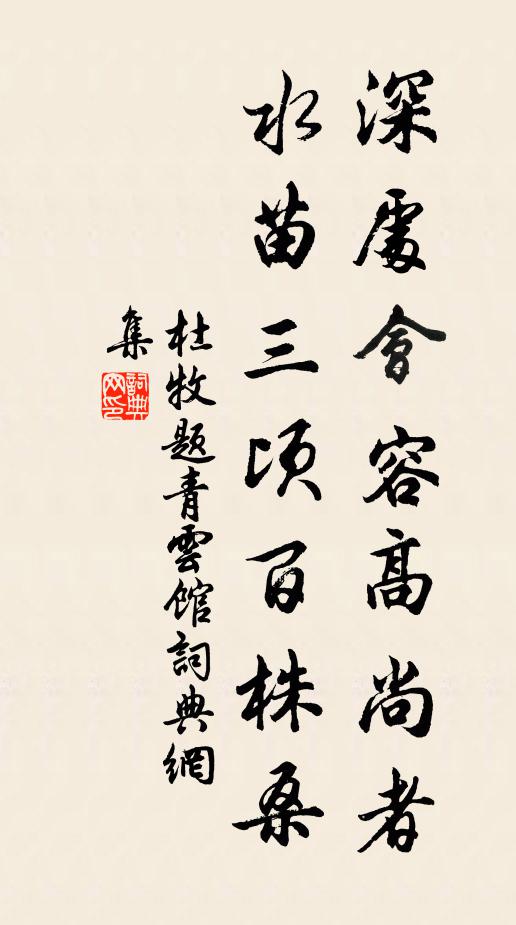 深處會容高尚者
水苗三頃百株桑
杜牧題青雲館詞典網
集
詞典網印